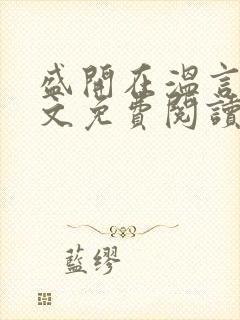 盛開在溫言
文免費閱讀
藍繆